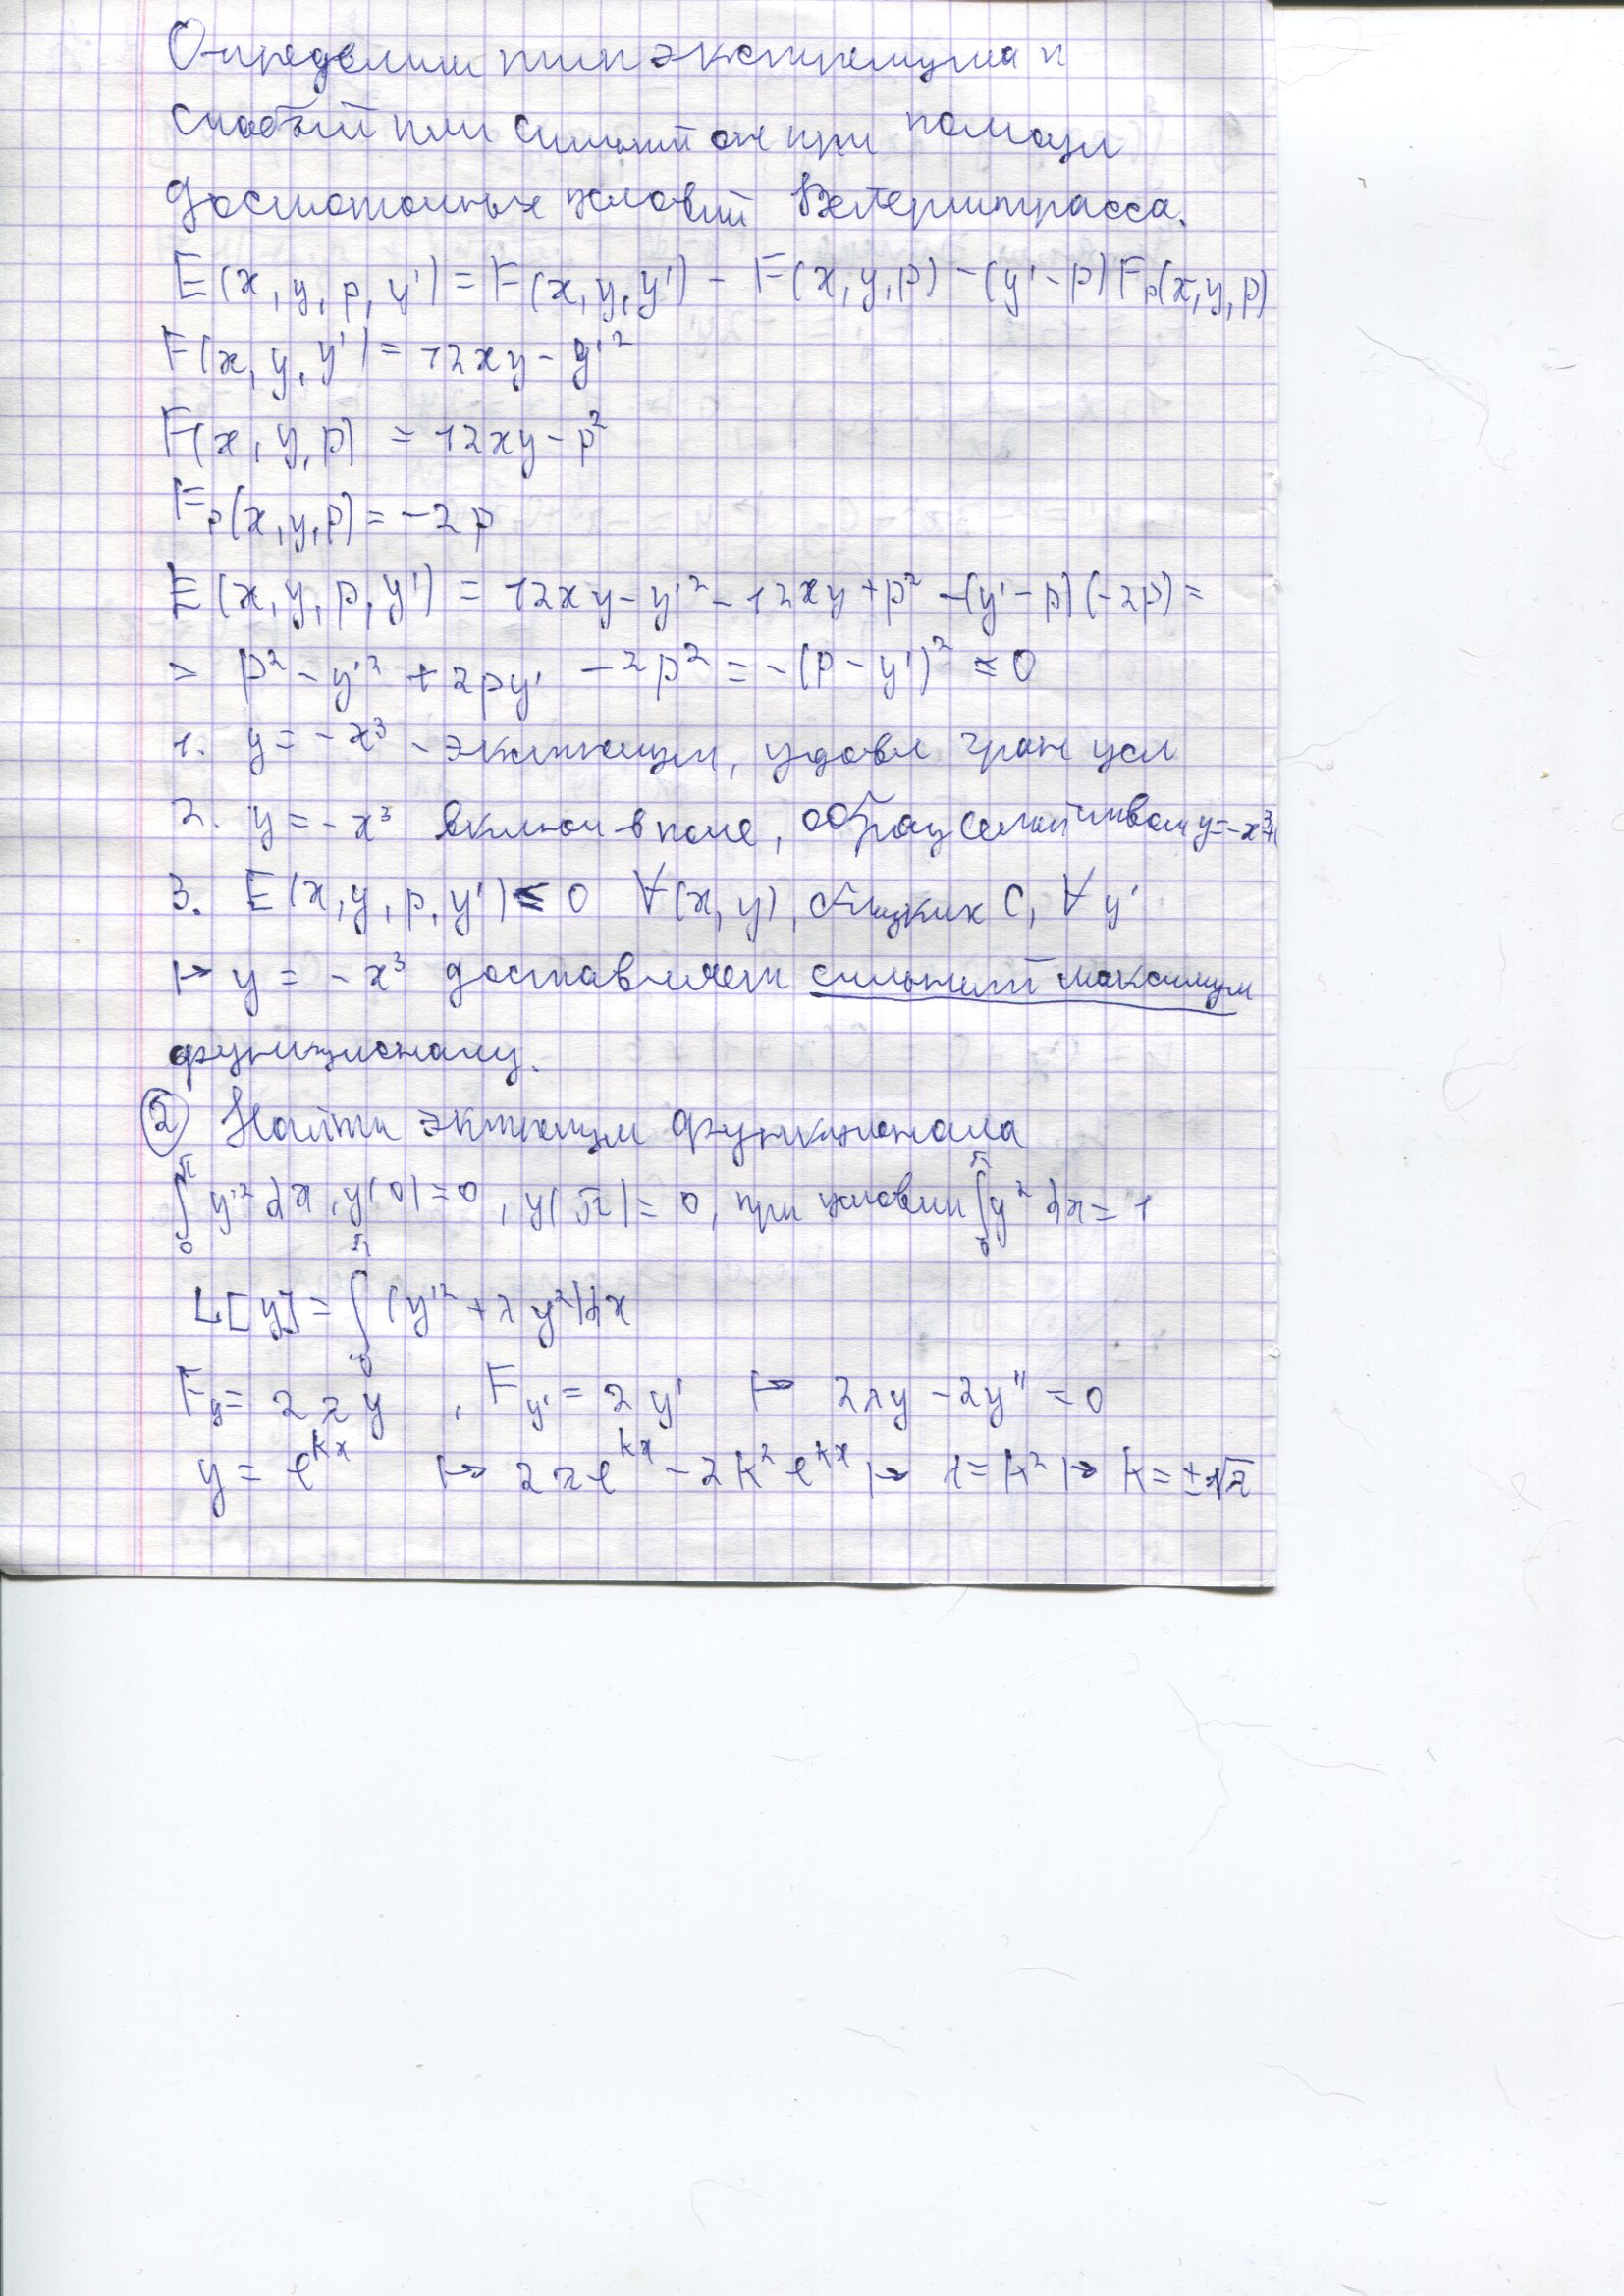 Определим тип экстремума и
слабый или сильный он при помощи
достаточных условий Вейерштрасса.
E(x, y, p, y') = F(x, y, y') - F(x, y, p) - (y' - p) Fₚ(x, y, p)
F(x, y, y') = 12xy - y'²
F(x, y, p) = 12xy - p²
Fₚ(x, y, p) = -2p
E(x, y, p, y') = 12xy - y'² - 12xy + p² - (y' - p)(-2p) =
= p² - y'² + 2py' - 2p² = -(p - y')² ≤ 0
1. y = -x³ - экстремум, удовл гран усл
2. y = -x³ включ в поле, образ семейством y = -x³+
3. E(x, y, p, y') ≤ 0 ∀(x, y), близких C, ∀y'
↦ y = -x³ доставляет сильный максимум
функционалу.
② Найти экстремум функционала
∫₀^π y'² dx, y(0) = 0, y(π) = 0, при условии ∫₀^π y² dx = 1
L[y] = ∫₀^π (y'² + λy²)dx
F_y = 2λy, F_y' = 2y' ↦ 2λy - 2y'' = 0
y = e^{kx} ↦ 2λe^{kx} - 2k²e^{kx} ↦ λ = k² ↦ k = ±√λ